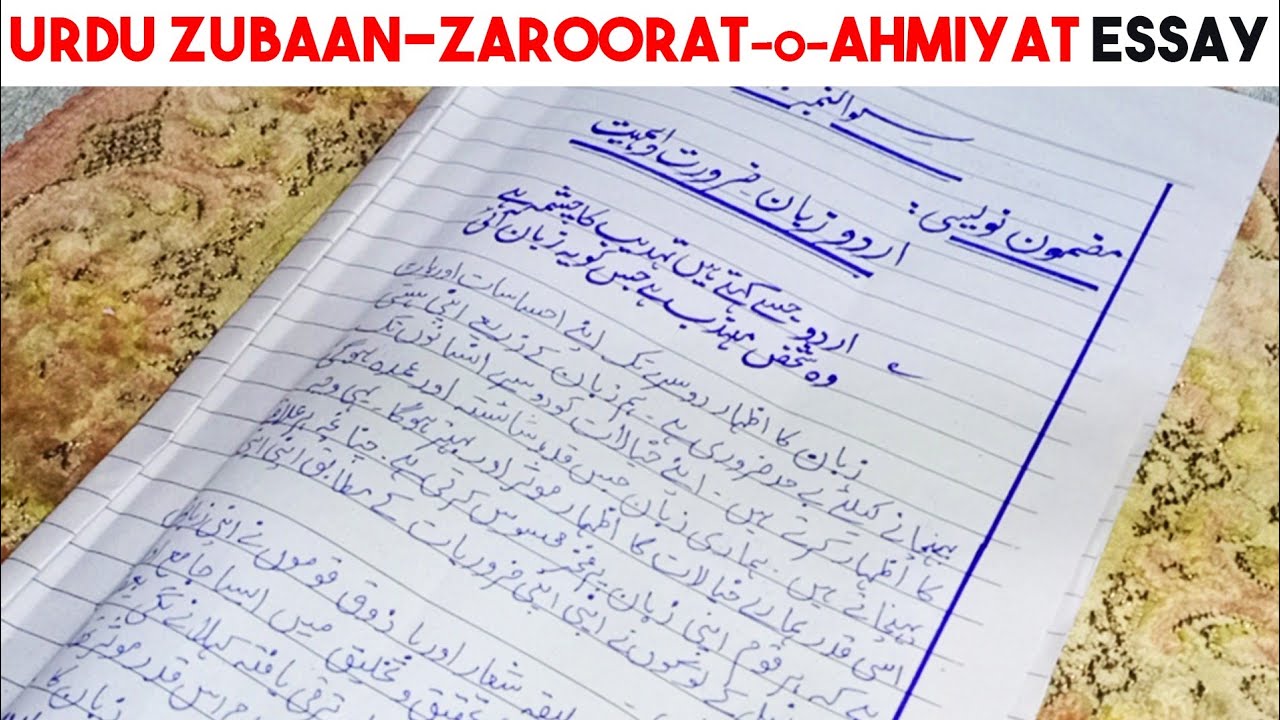 URDU ZUBAAN-ZAROORAT-o-AHMIYAT ESSAY
سوالنمبر
مضمون نویسی:
اردو زبان ضرورت و اہمیت
اردو جسے کہتے ہیں تہذیب کا چشمہ ہے
وہ شخص مہذب ہے جس کو یہ زبان آئی
زبان کا اظہار دوسرے تک اپنے احساسات اور
پہنچانے کیلئے بے حد ضروری ہے۔ ہم زبان کے ذریعے اپنی ہستی
کا اظہار کرتے ہیں۔ اپنے خیالات کو دوسرے انسانوں تک
پہنچاتے ہیں۔ ہماری زبان جس قدر شائستہ اور عمدہ ہوگی
اسی قدر ہمارے خیالات کا اظہار موثر اور بہتر ہوگا۔ یہی وجہ
ہے کہ ہر قوم اپنی زبان پر فخر محسوس کرتی ہے۔ چنانچہ ہر
کے لوگوں نے اپنی اپنی ضروریات کے مطابق اپنی
شعار اور با ذوق قوموں نے اپنی
تحقیق و تخلیق میں ایسا جامع
ترقی یافتہ کہلانے
اس قدر موثر
زبان کا